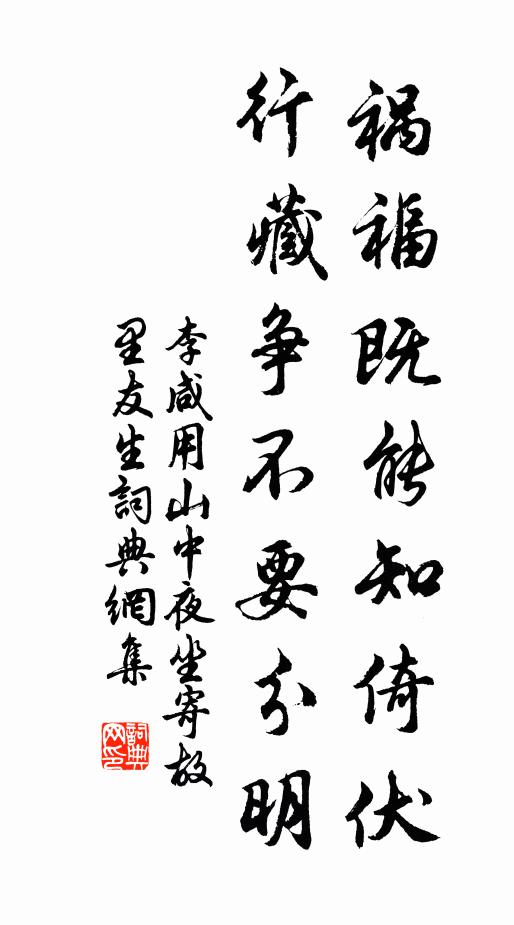 祸福既能知倚伏
行藏争不要分明
李咸用山中夜坐寄故
里友生詞典網集
詞典
网印